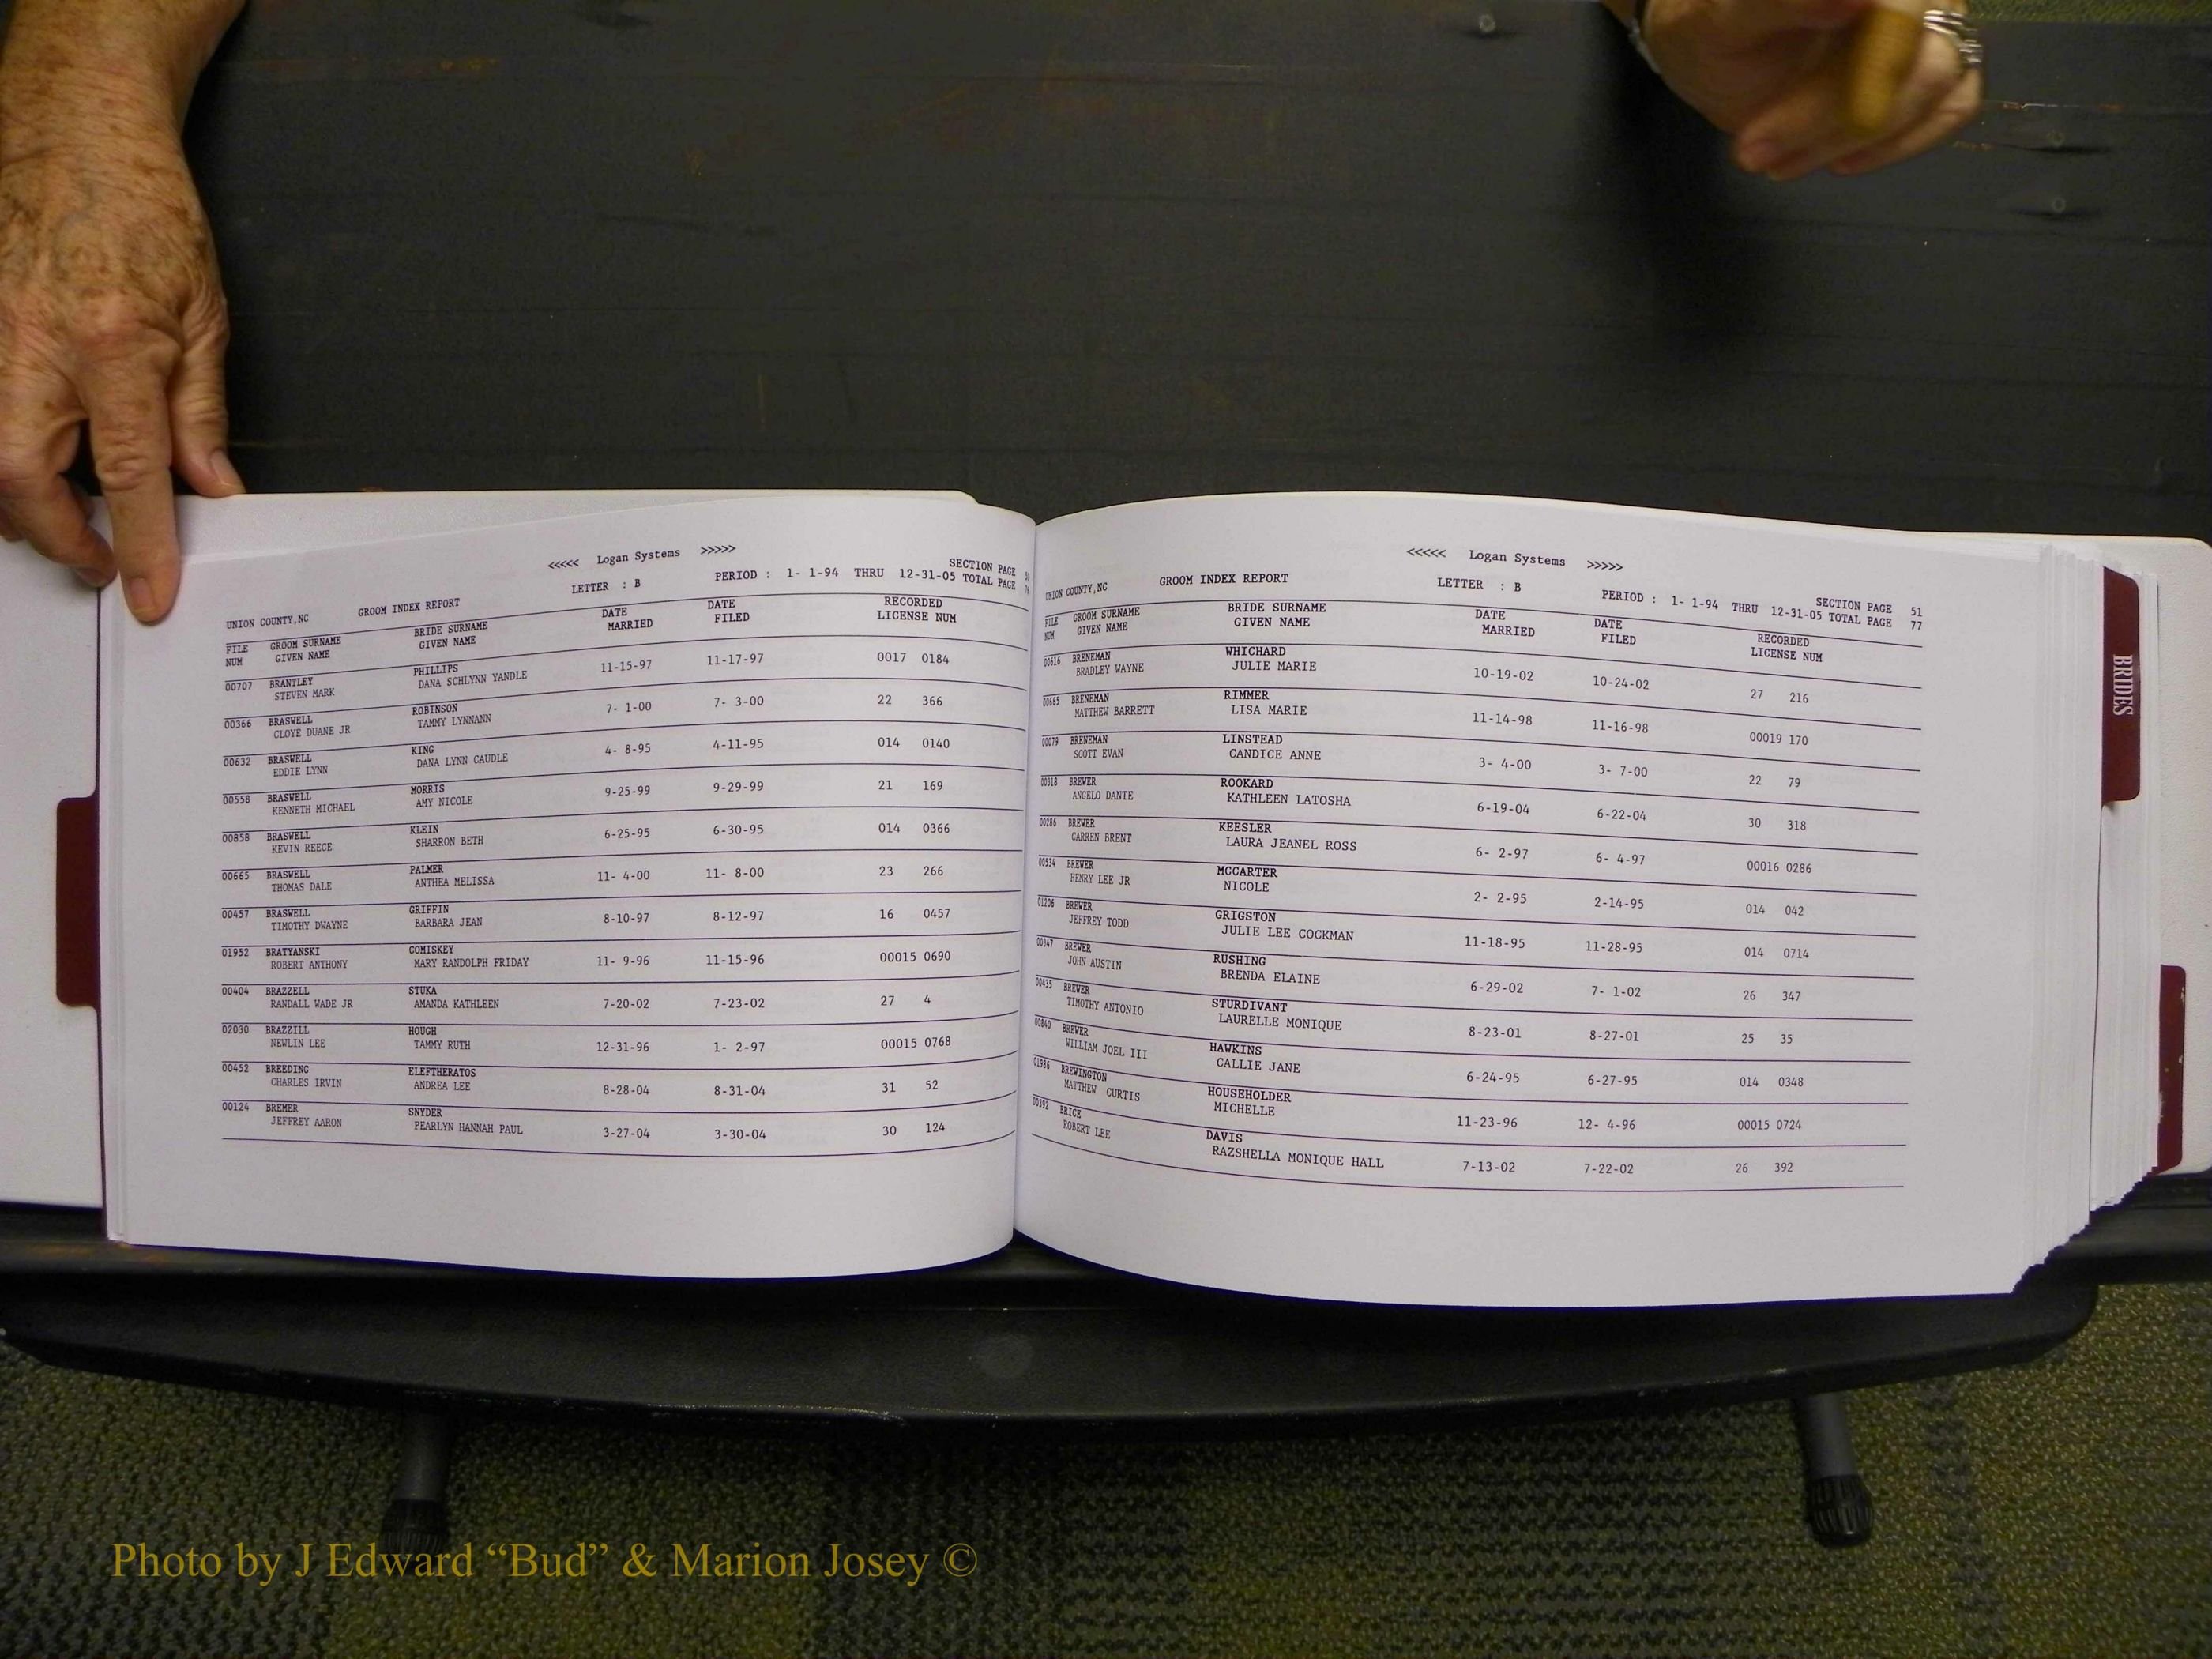 <<<<< Logan Systems >>>>>
UNION COUNTY,NC GROOM INDEX REPORT LETTER : B PERIOD : 1- 1-94 THRU 12-31-05 SECTION PAGE
TOTAL PAGE
FILE GROOM SURNAME BRIDE SURNAME DATE DATE RECORDED
NUM GIVEN NAME GIVEN NAME MARRIED FILED LICENSE NUM
00707 BRANTLEY PHILLIPS 11-15-97 11-17-97 0017 0184
STEVEN MARK DANA SCHLYNN YANDLE
00366 BRASWELL ROBINSON 7- 1-00 7- 3-00 22 366
CLOYE DUANE JR TAMMY LYNNANN
00632 BRASWELL KING 4- 8-95 4-11-95 014 0140
EDDIE LYNN DANA LYNN CAUDLE
00558 BRASWELL MORRIS 9-25-99 9-29-99 21 169
KENNETH MICHAEL AMY NICOLE
00858 BRASWELL KLEIN 6-25-95 6-30-95 014 0366
KEVIN REECE SHARRON BETH
00665 BRASWELL PALMER 11- 4-00 11- 8-00 23 266
THOMAS DALE ANTHEA MELISSA
00457 BRASWELL GRIFFIN 8-10-97 8-12-97 16 0457
TIMOTHY DWAYNE BARBARA JEAN
01952 BRATYANSKI COMISKEY 11- 9-96 11-15-96 00015 0690
ROBERT ANTHONY MARY RANDOLPH FRIDAY
00404 BRAZZELL STUKA 7-20-02 7-23-02 27 4
RANDALL WADE JR AMANDA KATHLEEN
02030 BRAZZILL HOUGH 12-31-96 1- 2-97 00015 0768
NEWLIN LEE TAMMY RUTH
00452 BREEDING ELEFTHERATOS 8-28-04 8-31-04 31 52
CHARLES IRVIN ANDREA LEE
00124 BREMER SNYDER 3-27-04 3-30-04 30 124
JEFFREY AARON PEARLYN HANNAH PAUL
<<<<< Logan Systems >>>>>
UNION COUNTY,NC GROOM INDEX REPORT LETTER : B PERIOD : 1- 1-94 THRU 12-31-05 SECTION PAGE 51
TOTAL PAGE 77
FILE GROOM SURNAME BRIDE SURNAME DATE DATE RECORDED
NUM GIVEN NAME GIVEN NAME MARRIED FILED LICENSE NUM
00616 BRENEMAN WHICHARD 10-19-02 10-24-02 27 216
BRADLEY WAYNE JULIE MARIE
00665 BRENEMAN RIMMER 11-14-98 11-16-98 00019 170
MATTHEW BARRETT LISA MARIE
00079 BRENEMAN LINSTEAD 3- 4-00 3- 7-00 22 79
SCOTT EVAN CANDICE ANNE
00318 BREWER ROOKARD 6-19-04 6-22-04 30 318
ANGELO DANTE KATHLEEN LATOSHA
00286 BREWER KEESLER 6- 2-97 6- 4-97 00016 0286
CARREN BRENT LAURA JEANEL ROSS
00534 BREWER MCCARTER 2- 2-95 2-14-95 014 042
HENRY LEE JR NICOLE
01206 BREWER GRIGSTON 11-18-95 11-28-95 014 0714
JEFFREY TODD JULIE LEE COCKMAN
00347 BREWER RUSHING 6-29-02 7- 1-02 26 347
JOHN AUSTIN BRENDA ELAINE
00435 BREWER STURDIVANT 8-23-01 8-27-01 25 35
TIMOTHY ANTONIO LAURELLE MONIQUE
00840 BREWER HAWKINS 6-24-95 6-27-95 014 0348
WILLIAM JOEL III CALLIE JANE
01986 BREWINGTON HOUSEHOLDER 11-23-96 12- 4-96 00015 0724
MATTHEW CURTIS MICHELLE
00392 BRICE DAVIS 7-13-02 7-22-02 26 392
ROBERT LEE RAZSHELLA MONIQUE HALL
BRIDES
Photo by J Edward “Bud” & Marion Josey ©